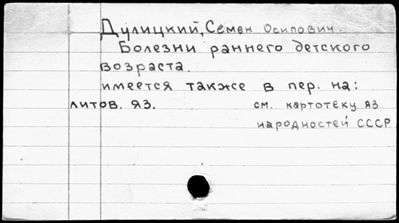 Дулицкий, Семен Осипович.
Болезни раннего детского
возраста.
имеется также в пер. на:
литов. яз. см. картотеку яз
народностей СССР